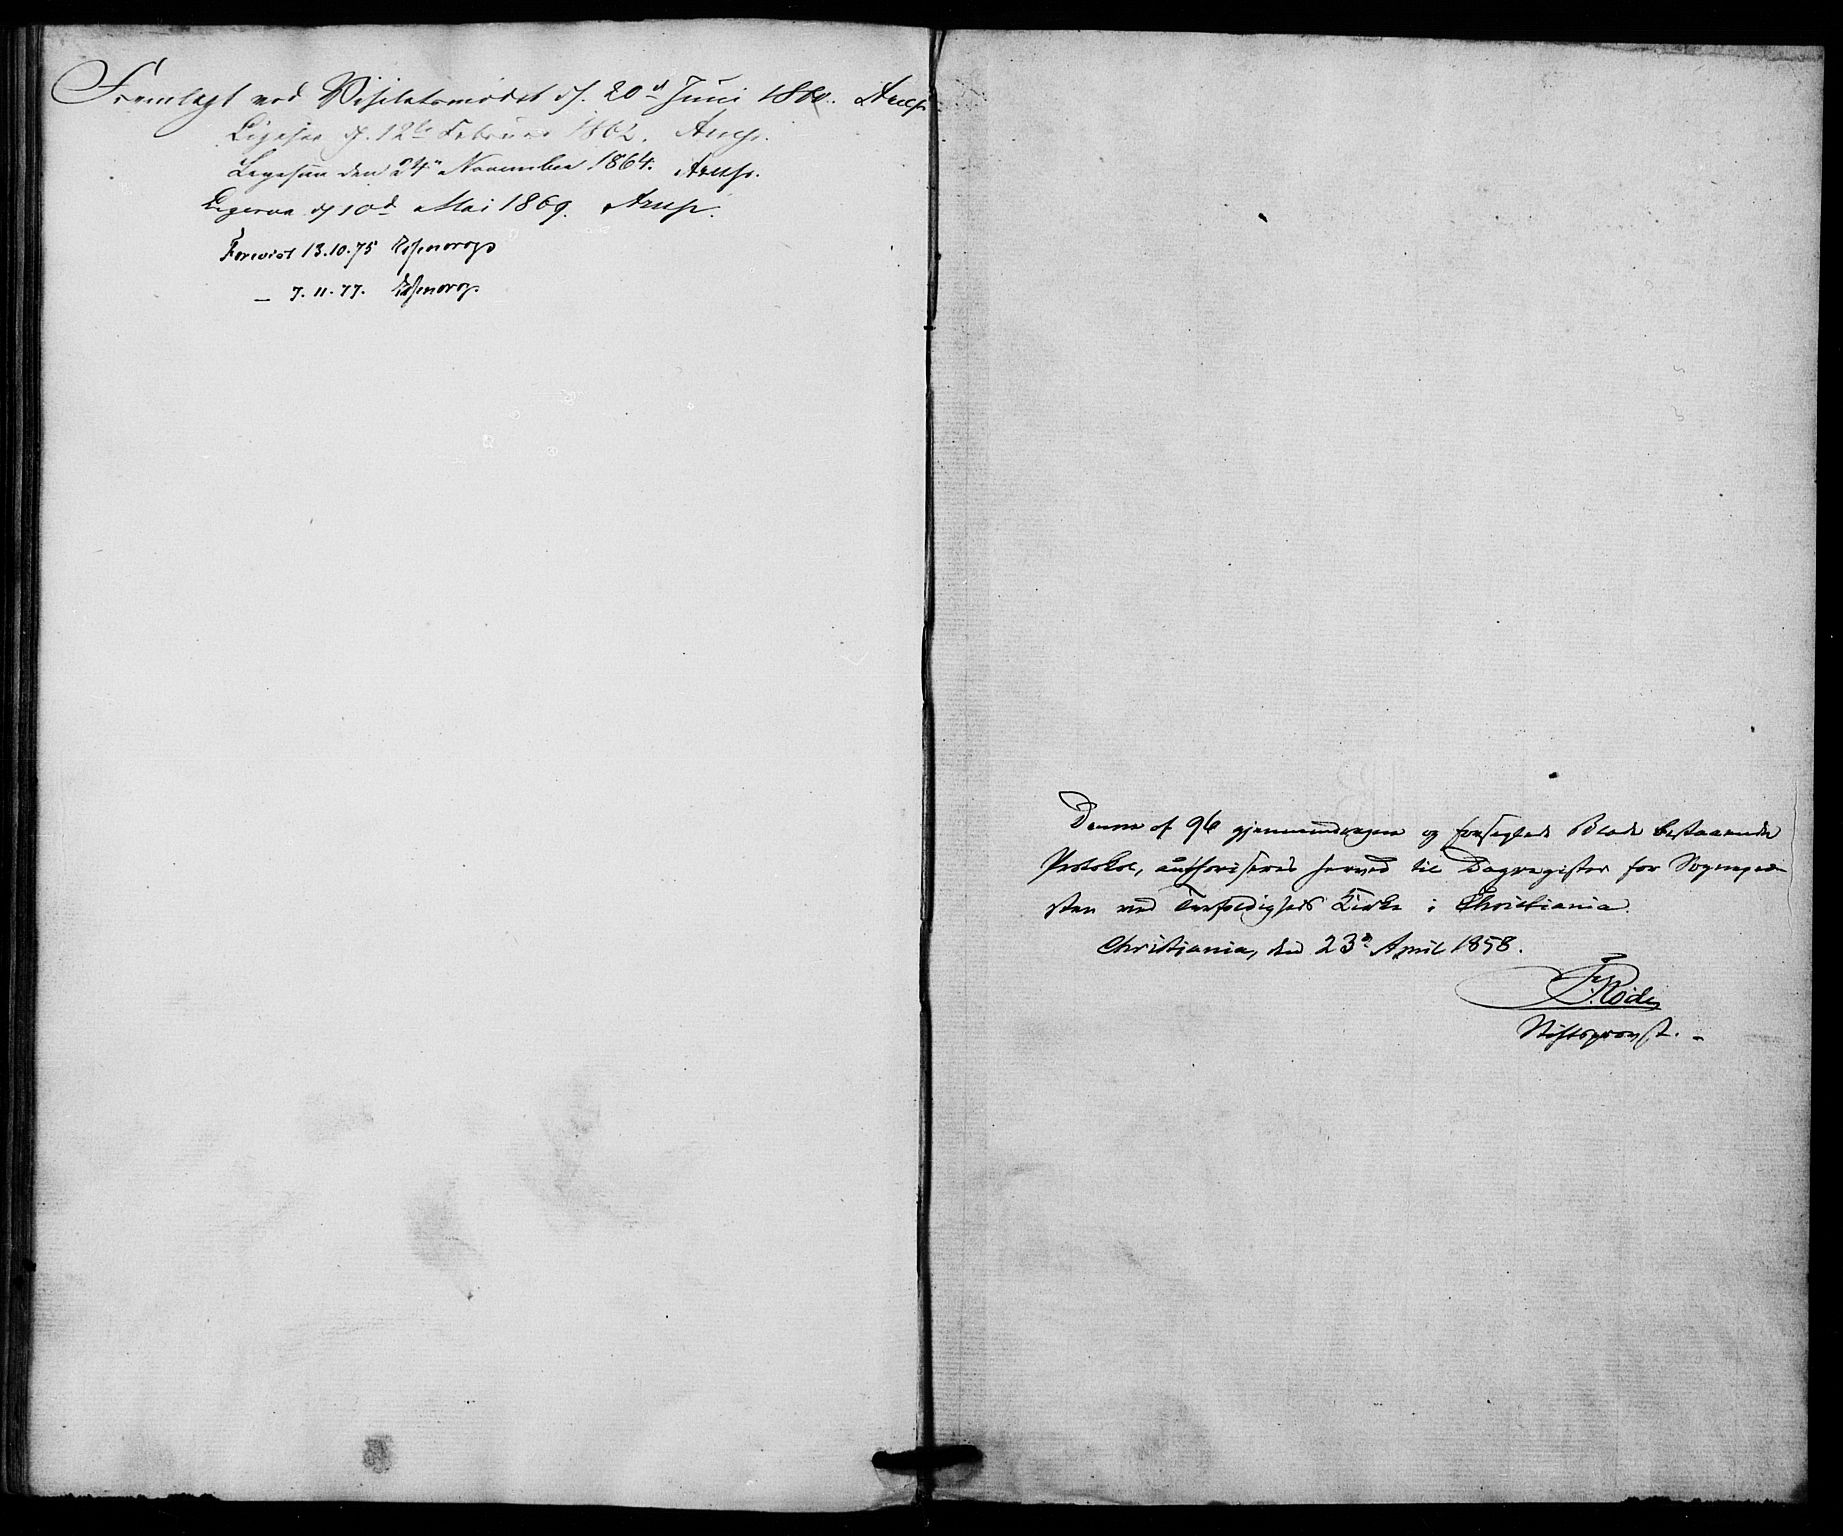 Fremlagt ved Visitatsmødet d. 20d Juni 1860. Arup.
Ligesaa d. 12te Februar 1862. Arup.
Ligesaa den 24de November 1864. Arup.
Ligesaa d 10d Mai 1869. Arup.
Forevist 13.10.75 Essendrop
— 7.11.77. Essendrop.
Denne af 96 gjennemdragne og forseglede Blade bestaaende
Protokol, authoriseres herved til Dagregister for Sognepræ-
sten ved Trefoldigheds Kirke i Christiania.
Christiania, den 23d April 1858.
Stiftsprovst. -